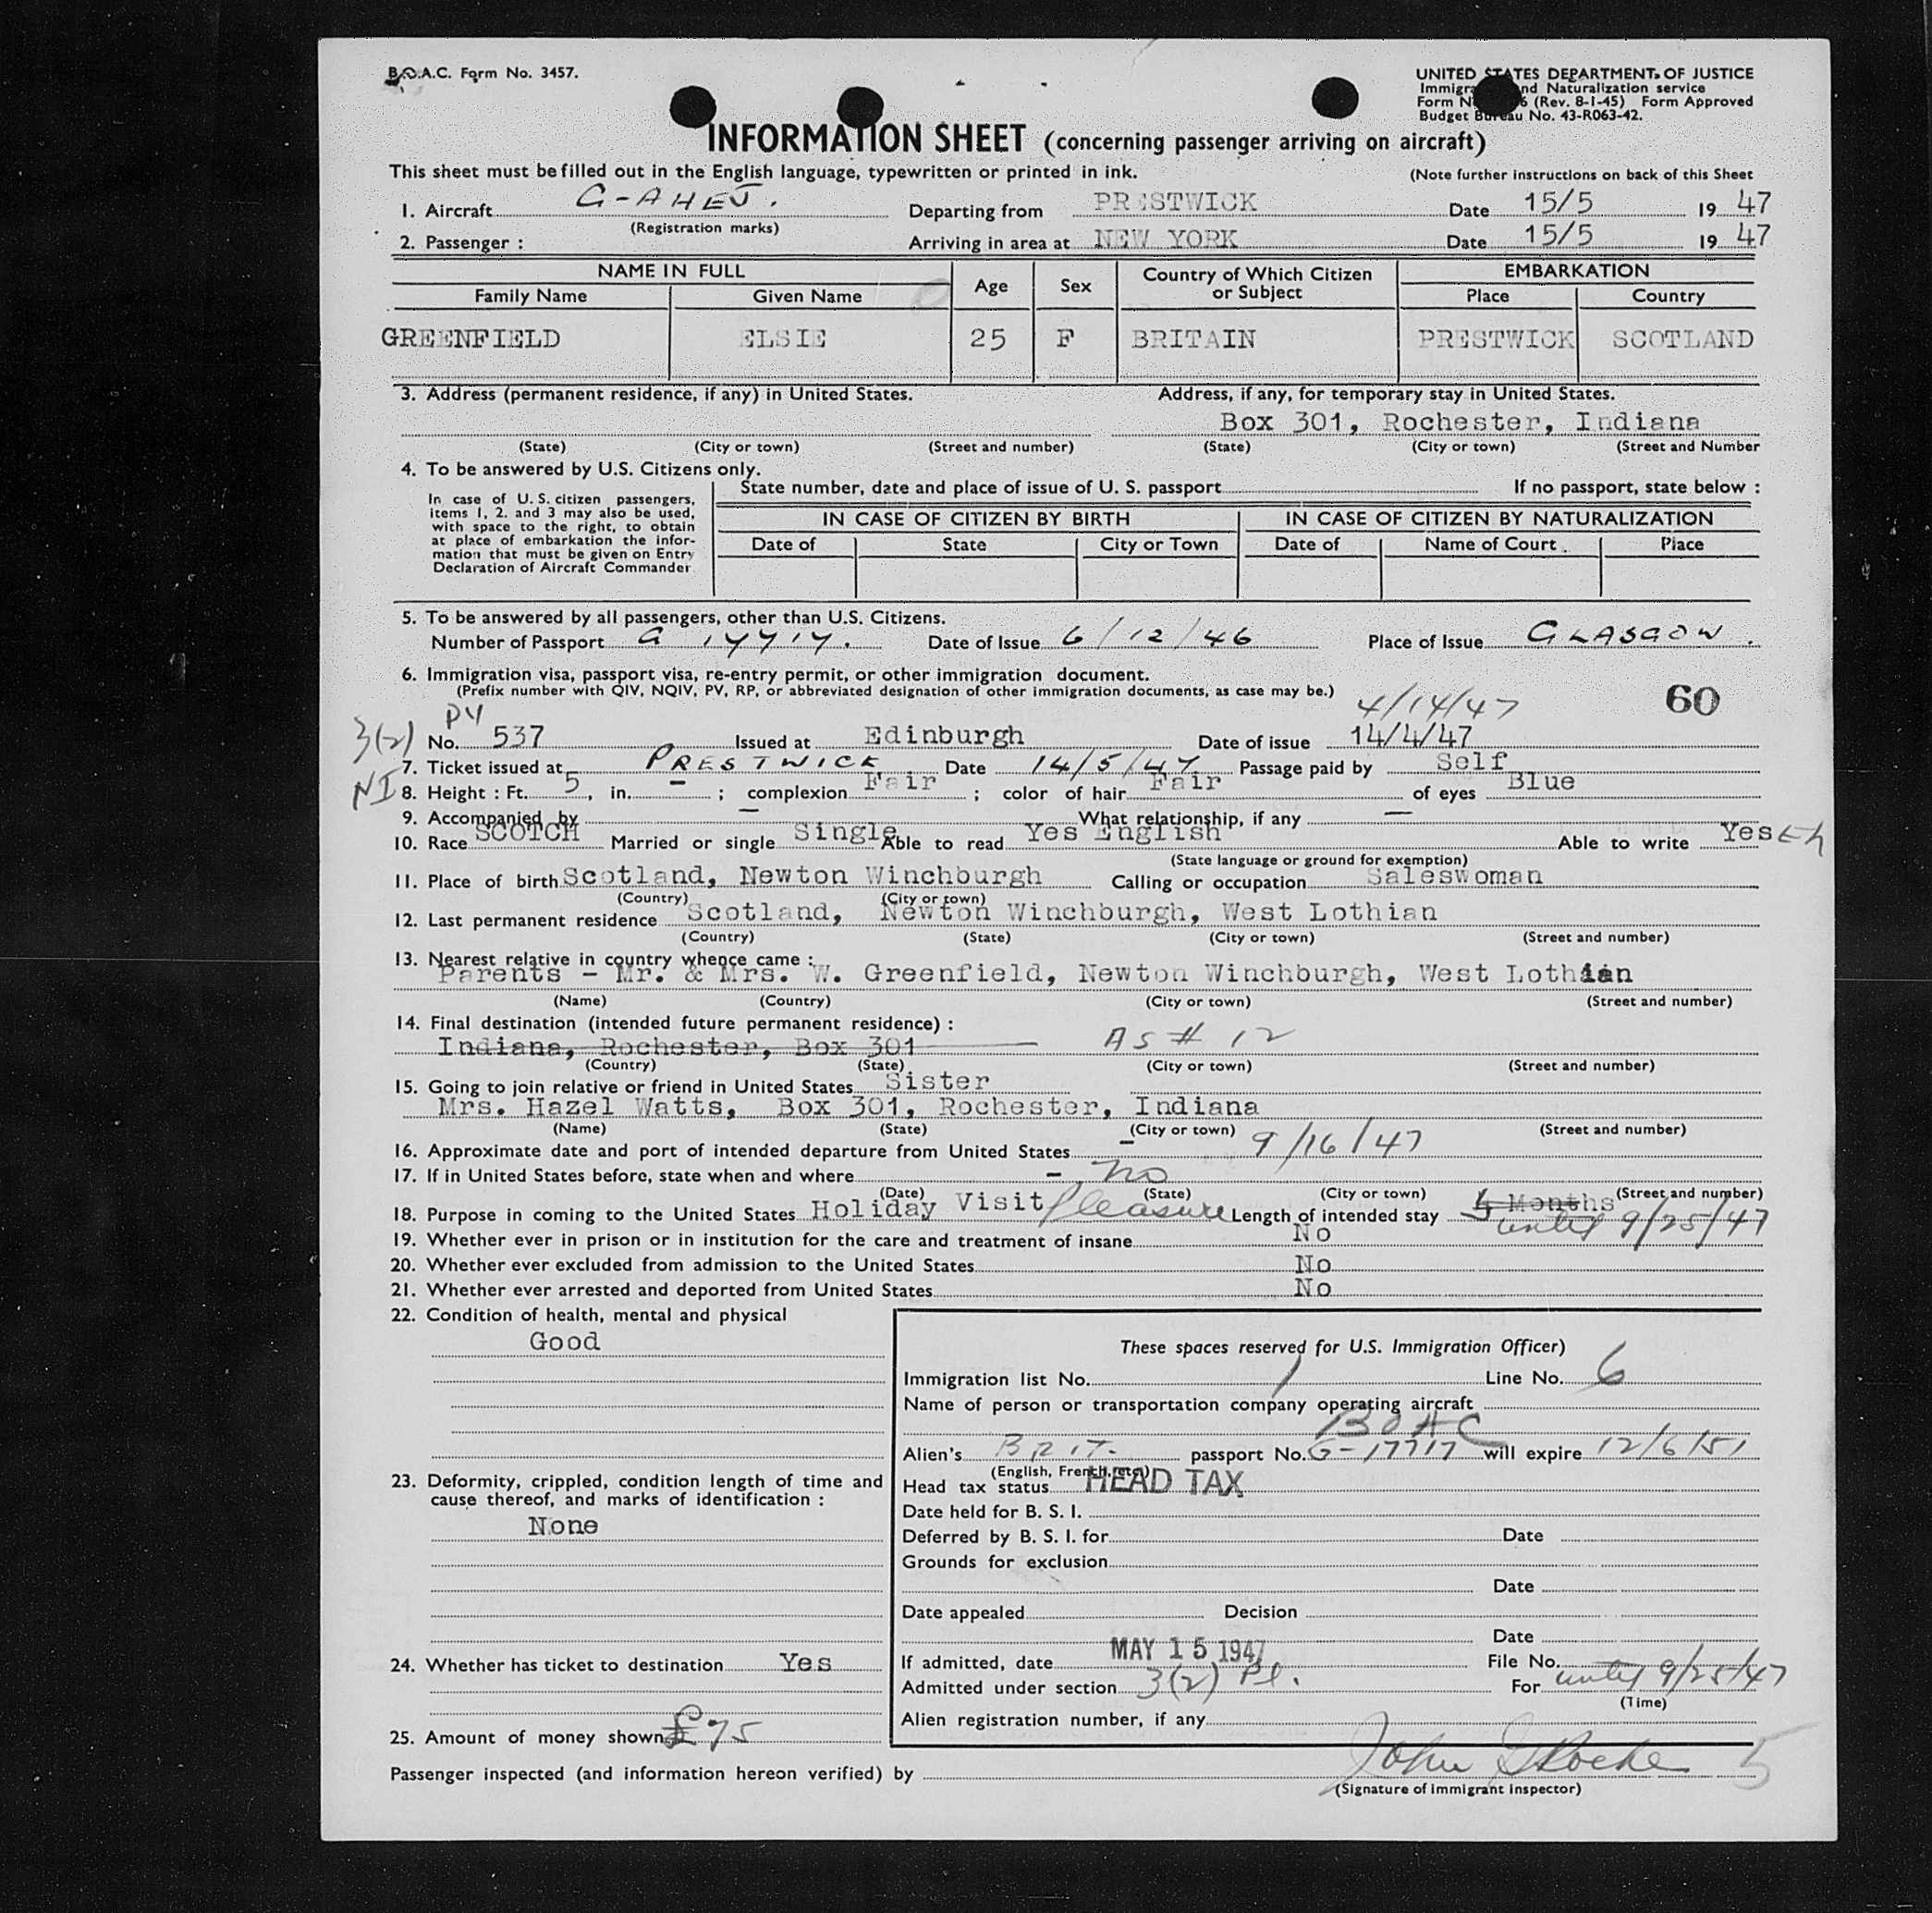 B.O.A.C. Form No. 3457.
UNITED STATES DEPARTMENT OF JUSTICE
Immigra nd Naturalization service
Form N 6 (Rev. 8-1-45) Form Approved
Budget Bureau No. 43-R063-42.
INFORMATION SHEET (concerning passenger arriving on aircraft)
This sheet must be filled out in the English language, typewritten or printed in ink. (Note further instructions on back of this Sheet
1. Aircraft G-AHEJ. Departing from PRESTWICK Date 15/5 19 47
(Registration marks)
2. Passenger : Arriving in area at NEW YORK Date 15/5 19 47
NAME IN FULL Age Sex Country of Which Citizen or Subject EMBARKATION
Family Name Given Name Place Country
GREENFIELD ELSIE 25 F BRITAIN PRESTWICK SCOTLAND
3. Address (permanent residence, if any) in United States. Address, if any, for temporary stay in United States.
Box 301, Rochester, Indiana
(State) (City or town) (Street and number) (State) (City or town) (Street and Number
4. To be answered by U.S. Citizens only.
State number, date and place of issue of U. S. passport If no passport, state below :
In case of U. S. citizen passengers,
items 1, 2. and 3 may also be used,
with space to the right, to obtain
at place of embarkation the infor-
mation that must be given on Entry
Declaration of Aircraft Commander
IN CASE OF CITIZEN BY BIRTH IN CASE OF CITIZEN BY NATURALIZATION
Date of State City or Town Date of Name of Court Place
5. To be answered by all passengers, other than U.S. Citizens.
Number of Passport G 17717. Date of Issue 6/12/46 Place of Issue GLASGOW.
6. Immigration visa, passport visa, re-entry permit, or other immigration document.
(Prefix number with QIV, NQIV, PV, RP, or abbreviated designation of other immigration documents, as case may be.)
PV 4/14/47 60
3(2) No. 537 Issued at Edinburgh Date of issue 14/4/47
7. Ticket issued at PRESTWICK Date 14/5/47 Passage paid by Self
NI 8. Height : Ft. 5, in. – ; complexion Fair ; color of hair Fair of eyes Blue
9. Accompanied by — What relationship, if any —
10. Race SCOTCH Married or single Single Able to read Yes English Able to write Yes Eh
(State language or ground for exemption)
11. Place of birth Scotland, Newton Winchburgh Calling or occupation Saleswoman
(Country) (City or town)
12. Last permanent residence Scotland, Newton Winchburgh, West Lothian
(Country) (State) (City or town) (Street and number)
13. Nearest relative in country whence came :
Parents - Mr. & Mrs. W. Greenfield, Newton Winchburgh, West Lothian
(Name) (Country) (City or town) (Street and number)
14. Final destination (intended future permanent residence) :
Indiana, Rochester, Box 301 AS # 12
(Country) (State) (City or town) (Street and number)
15. Going to join relative or friend in United States Sister
Mrs. Hazel Watts, Box 301, Rochester, Indiana
(Name) (State) (City or town) (Street and number)
16. Approximate date and port of intended departure from United States – 9/16/47
17. If in United States before, state when and where – no
(Date) (State) (City or town) (Street and number)
18. Purpose in coming to the United States Holiday Visit Pleasure Length of intended stay Months until 9/25/47
19. Whether ever in prison or in institution for the care and treatment of insane No
20. Whether ever excluded from admission to the United States No
21. Whether ever arrested and deported from United States No
22. Condition of health, mental and physical
Good
23. Deformity, crippled, condition length of time and
cause thereof, and marks of identification :
None
24. Whether has ticket to destination Yes
25. Amount of money shown £75
These spaces reserved for U.S. Immigration Officer)
Immigration list No. 1 Line No. 6
Name of person or transportation company operating aircraft
BOAC
Alien's BRIT. passport No. G-17717 will expire 12/6/51
(English, French, etc.)
Head tax status HEAD TAX
Date held for B. S. I.
Deferred by B. S. I. for Date
Grounds for exclusion
Date
Date appealed Decision
Date
If admitted, date MAY 15 1947 File No.
Admitted under section 3(2) Pl. For until 9/25/47
(Time)
Alien registration number, if any
Passenger inspected (and information hereon verified) by John Roche 5
(Signature of Immigrant Inspector)